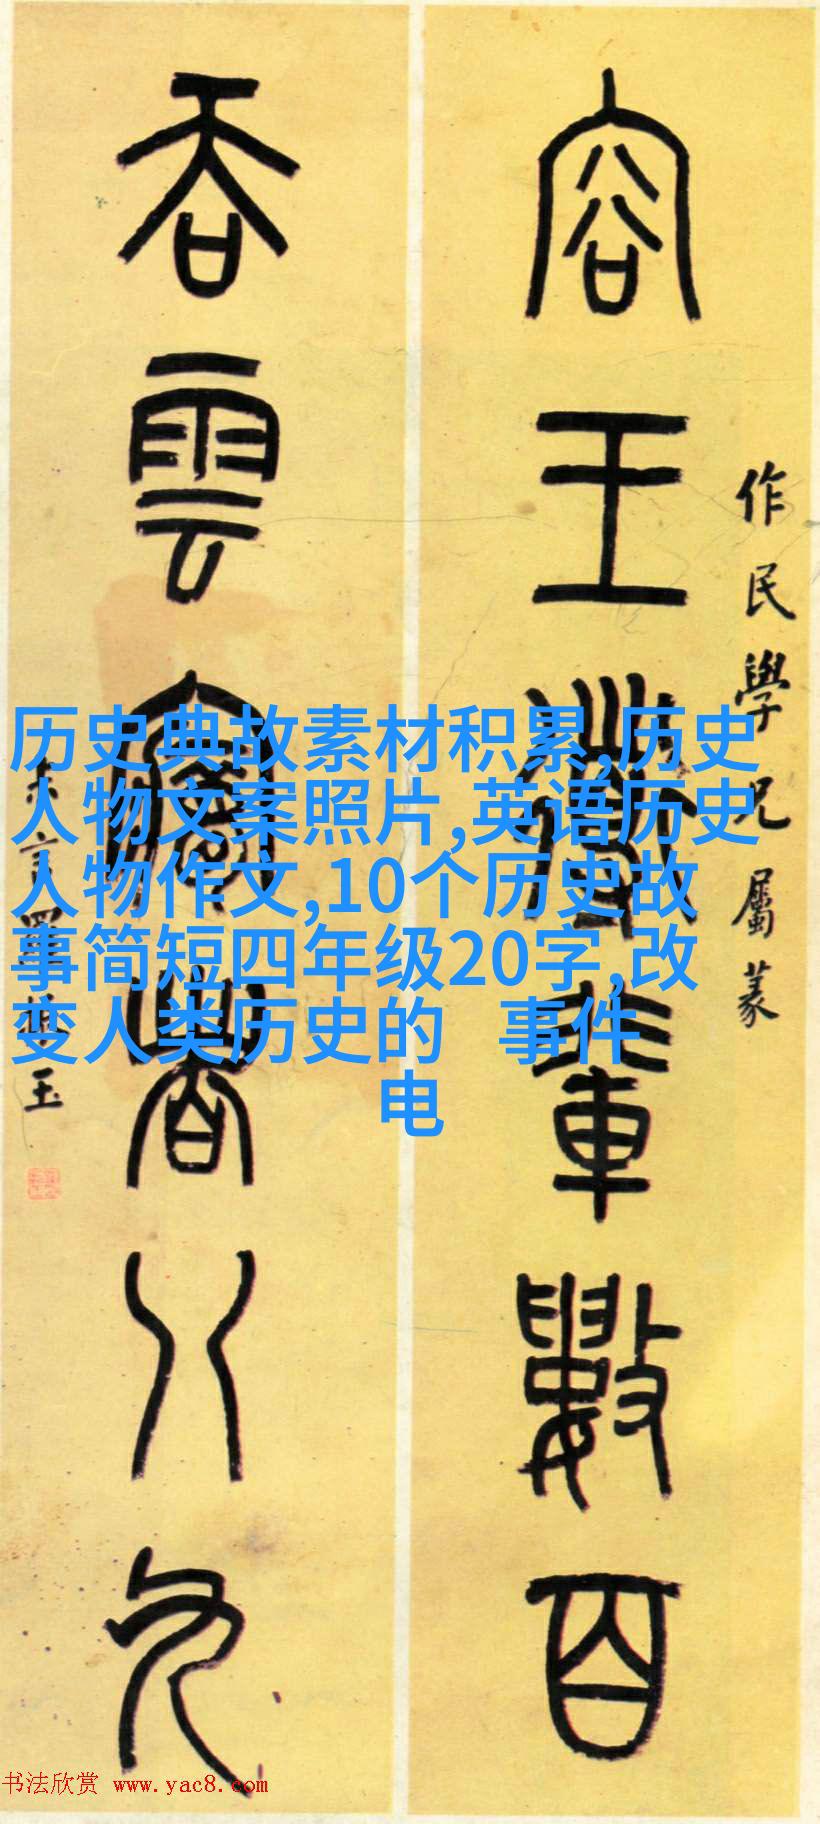 历史典故素材积累,历史
人物文案照片,英语历史
人物作文,10个历史故
事简短四年级20字,改
变人类历史的 事件
电
作民學兄屬篆
容王輩數百
吞雲夢者八九
羅振玉
书法欣赏 www.yac8.com